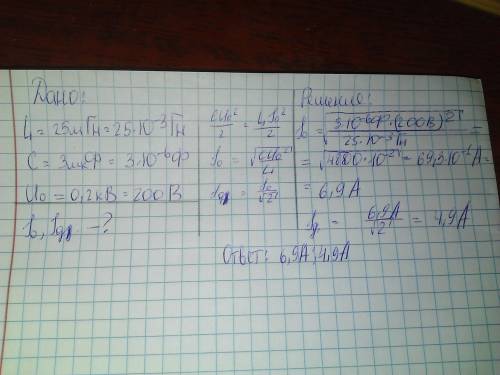 Дано:
L = 25мГн = 25·10⁻³ Гн
C = 3мкФ = 3·10⁻⁶ Ф
U₀ = 0,2кВ = 200В
I₀, Iд -?
CU₀²/2 = LI₀²/2
I₀ = √CU₀²/L
Iд = I₀/√2
Решение:
I₀ = √3·10⁻⁶Ф·(200В)²/25·10⁻³Гн =
= 10⁻² = 69,3·10⁻¹A =
= 6,9A
Iд = 6,9A/√2 = 4,9A
Ответ: 6,9A; 4,9A